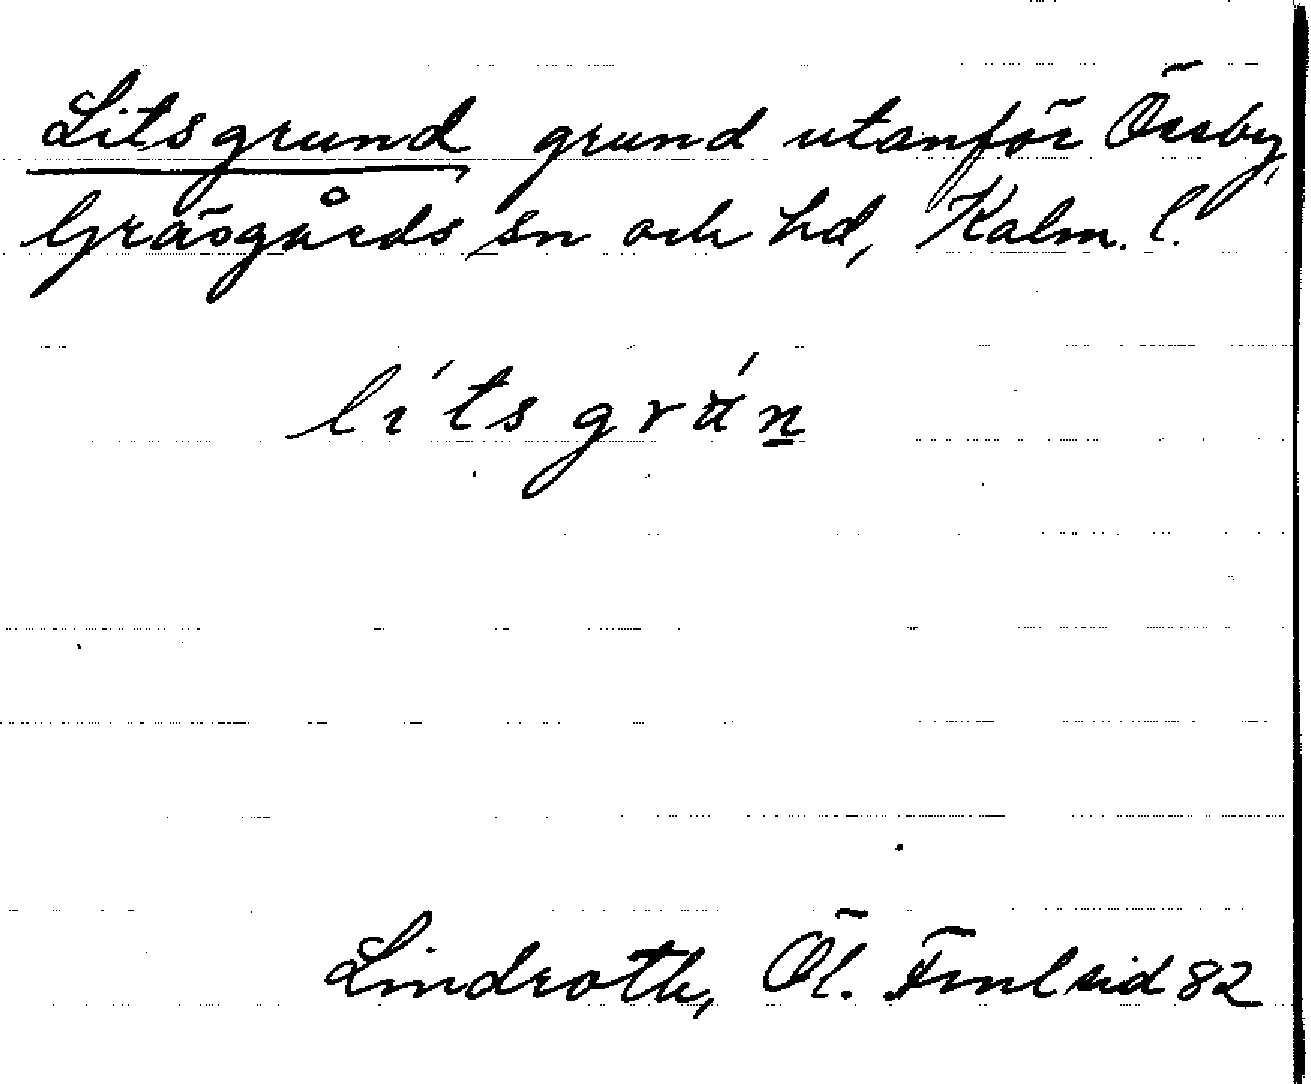 Litsgrund grund utanför Össby,
Gräsgårds sn och hd, Kalm. l.
lítsgrán
Lindroth, Öl. Fml sid 82